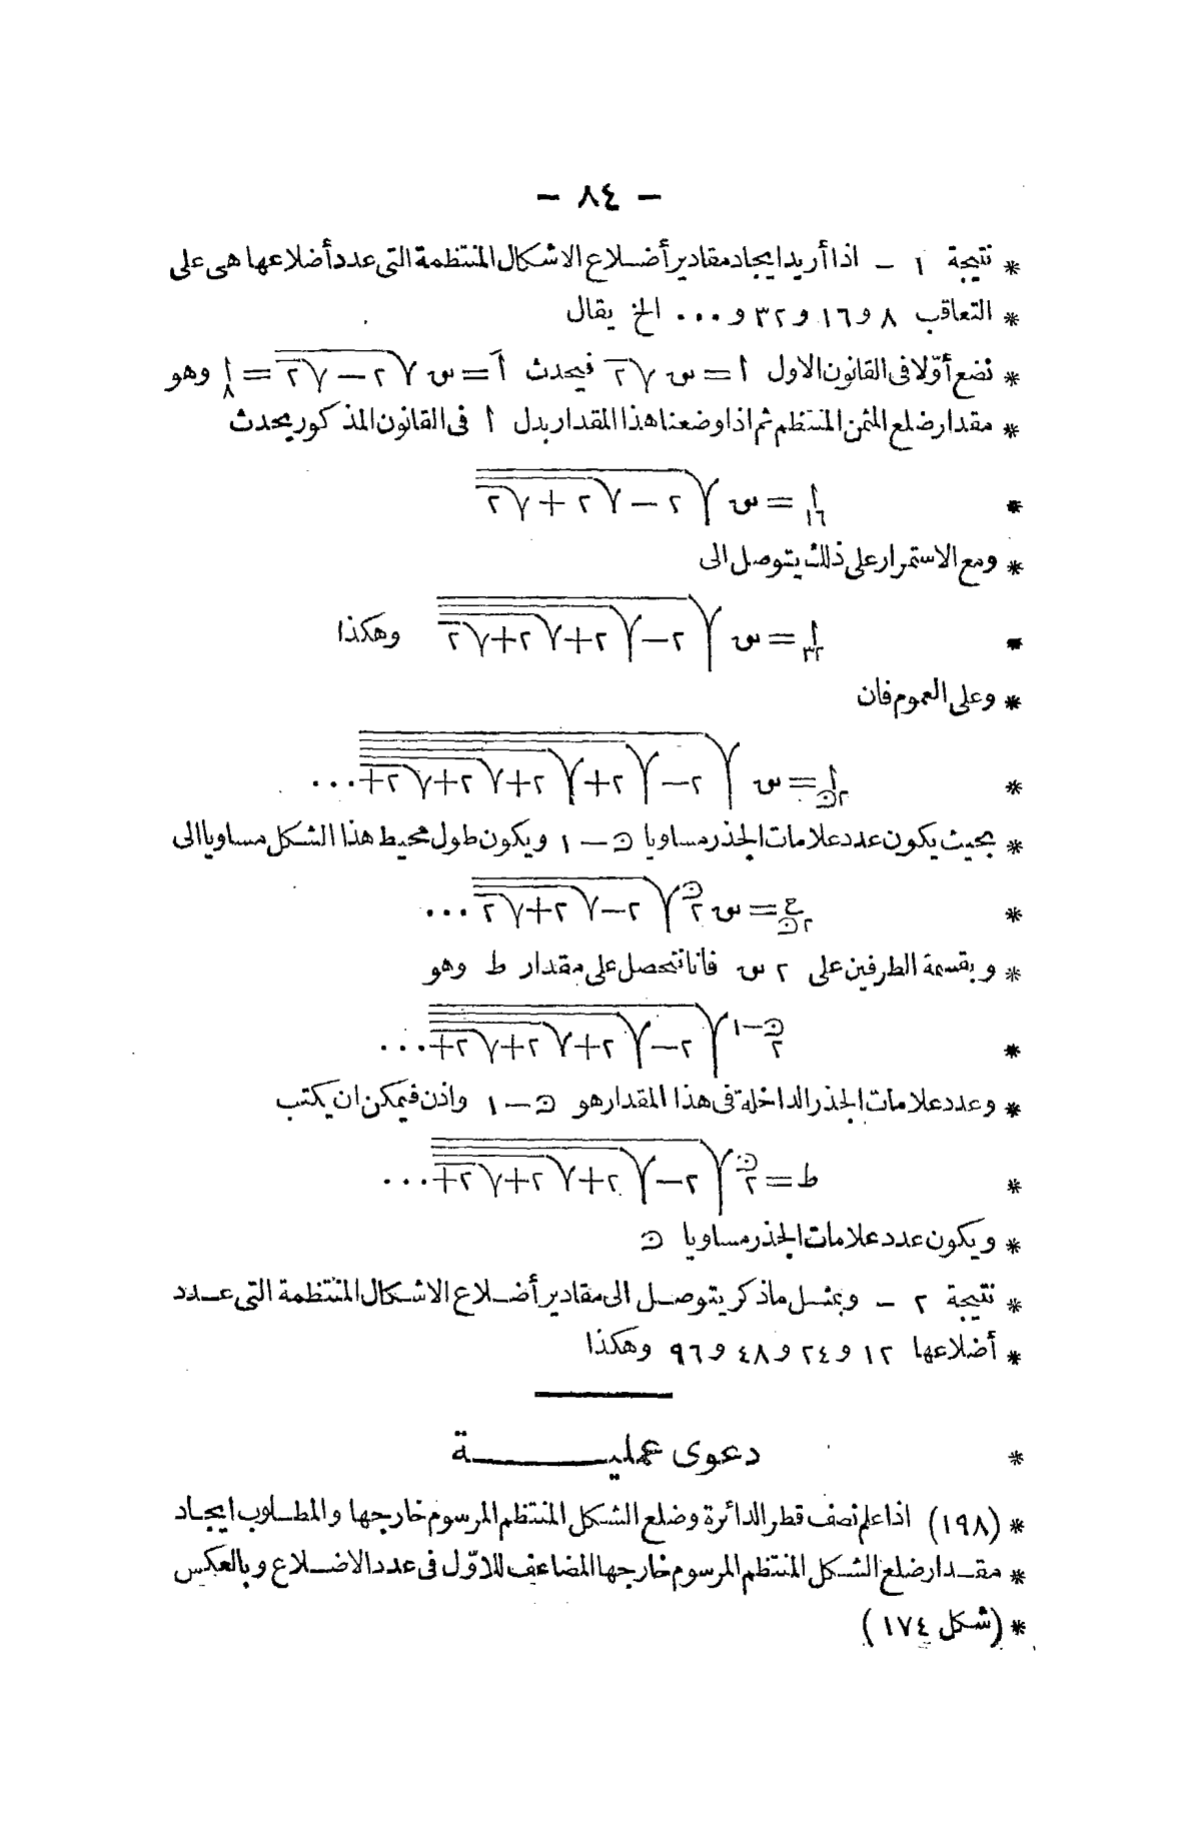 — ٨٤ —
* نتيجة ١ — اذا أريد ايجاد مقادير أضلاع الاشكال المنتظمة التى عدد أضلاعها هى على
* التعاقب ٨ و ١٦ و ٣٢ و ... الخ يقال
* نضع أوّلا فى القانون الاول ا = س √٢ فيحدث اَ = س √(٢ − √٢) = ا٨ وهو
* مقدار ضلع المثمن المنتظم ثم اذا وضعنا هذا المقدار بدل ا فى القانون المذكور يحدث
* ا١٦ = س √(٢ − √(٢ + √٢))
* ومع الاستمرار على ذلك يتوصل الى
* ا٣٢ = س √(٢ − √(٢ + √(٢ + √٢))) وهكذا
* وعلى العموم فان
* ا٢ن = س √(٢ − √(٢ + √(٢ + √(٢ + √(٢ + ...
* بحيث يكون عدد علامات الجذر مساويا ن — ١ ويكون طول محيط هذا الشكل مساويا الى
* ح٢ن = س ٢ن √(٢ − √(٢ + √٢ ...
* وبقسمة الطرفين على ٢ س فاننا نتحصل على مقدار ط وهو
* ٢ن−١ √(٢ − √(٢ + √(٢ + √(٢ + ...
* وعدد علامات الجذر الداخلة فى هذا المقدار هو ن — ١ واذن فيمكن ان يكتب
* ط = ٢ن √(٢ − √(٢ + √(٢ + √(٢ + ...
* ويكون عدد علامات الجذر مساويا ن
* نتيجة ٢ — وبمثل ماذكر يتوصل الى مقادير أضلاع الاشكال المنتظمة التى عدد
* أضلاعها ١٢ و ٢٤ و ٤٨ و ٩٦ وهكذا
* دعوى عملية
* (١٩٨) اذا علم نصف قطر الدائرة وضلع الشكل المنتظم المرسوم خارجها والمطلوب ايجاد
* مقدار ضلع الشكل المنتظم المرسوم خارجها المضاعف للاوّل فى عدد الاضلاع وبالعكس
* (شكل ١٧٤)